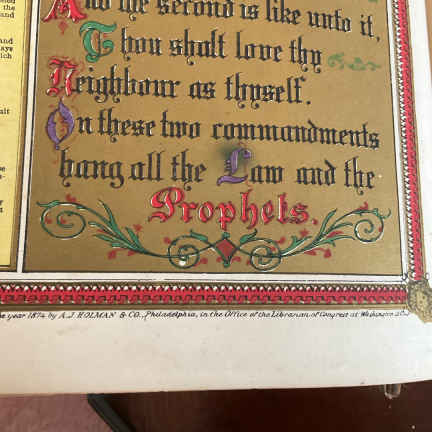 And the second is like unto it,
Thou shalt love thy
Neighbour as thyself.
On these two commandments
hang all the Law and the
Prophets.
year 1874 by A.J. HOLMAN & CO., Philadelphia, in the Office of the Librarian of Congress at Washington